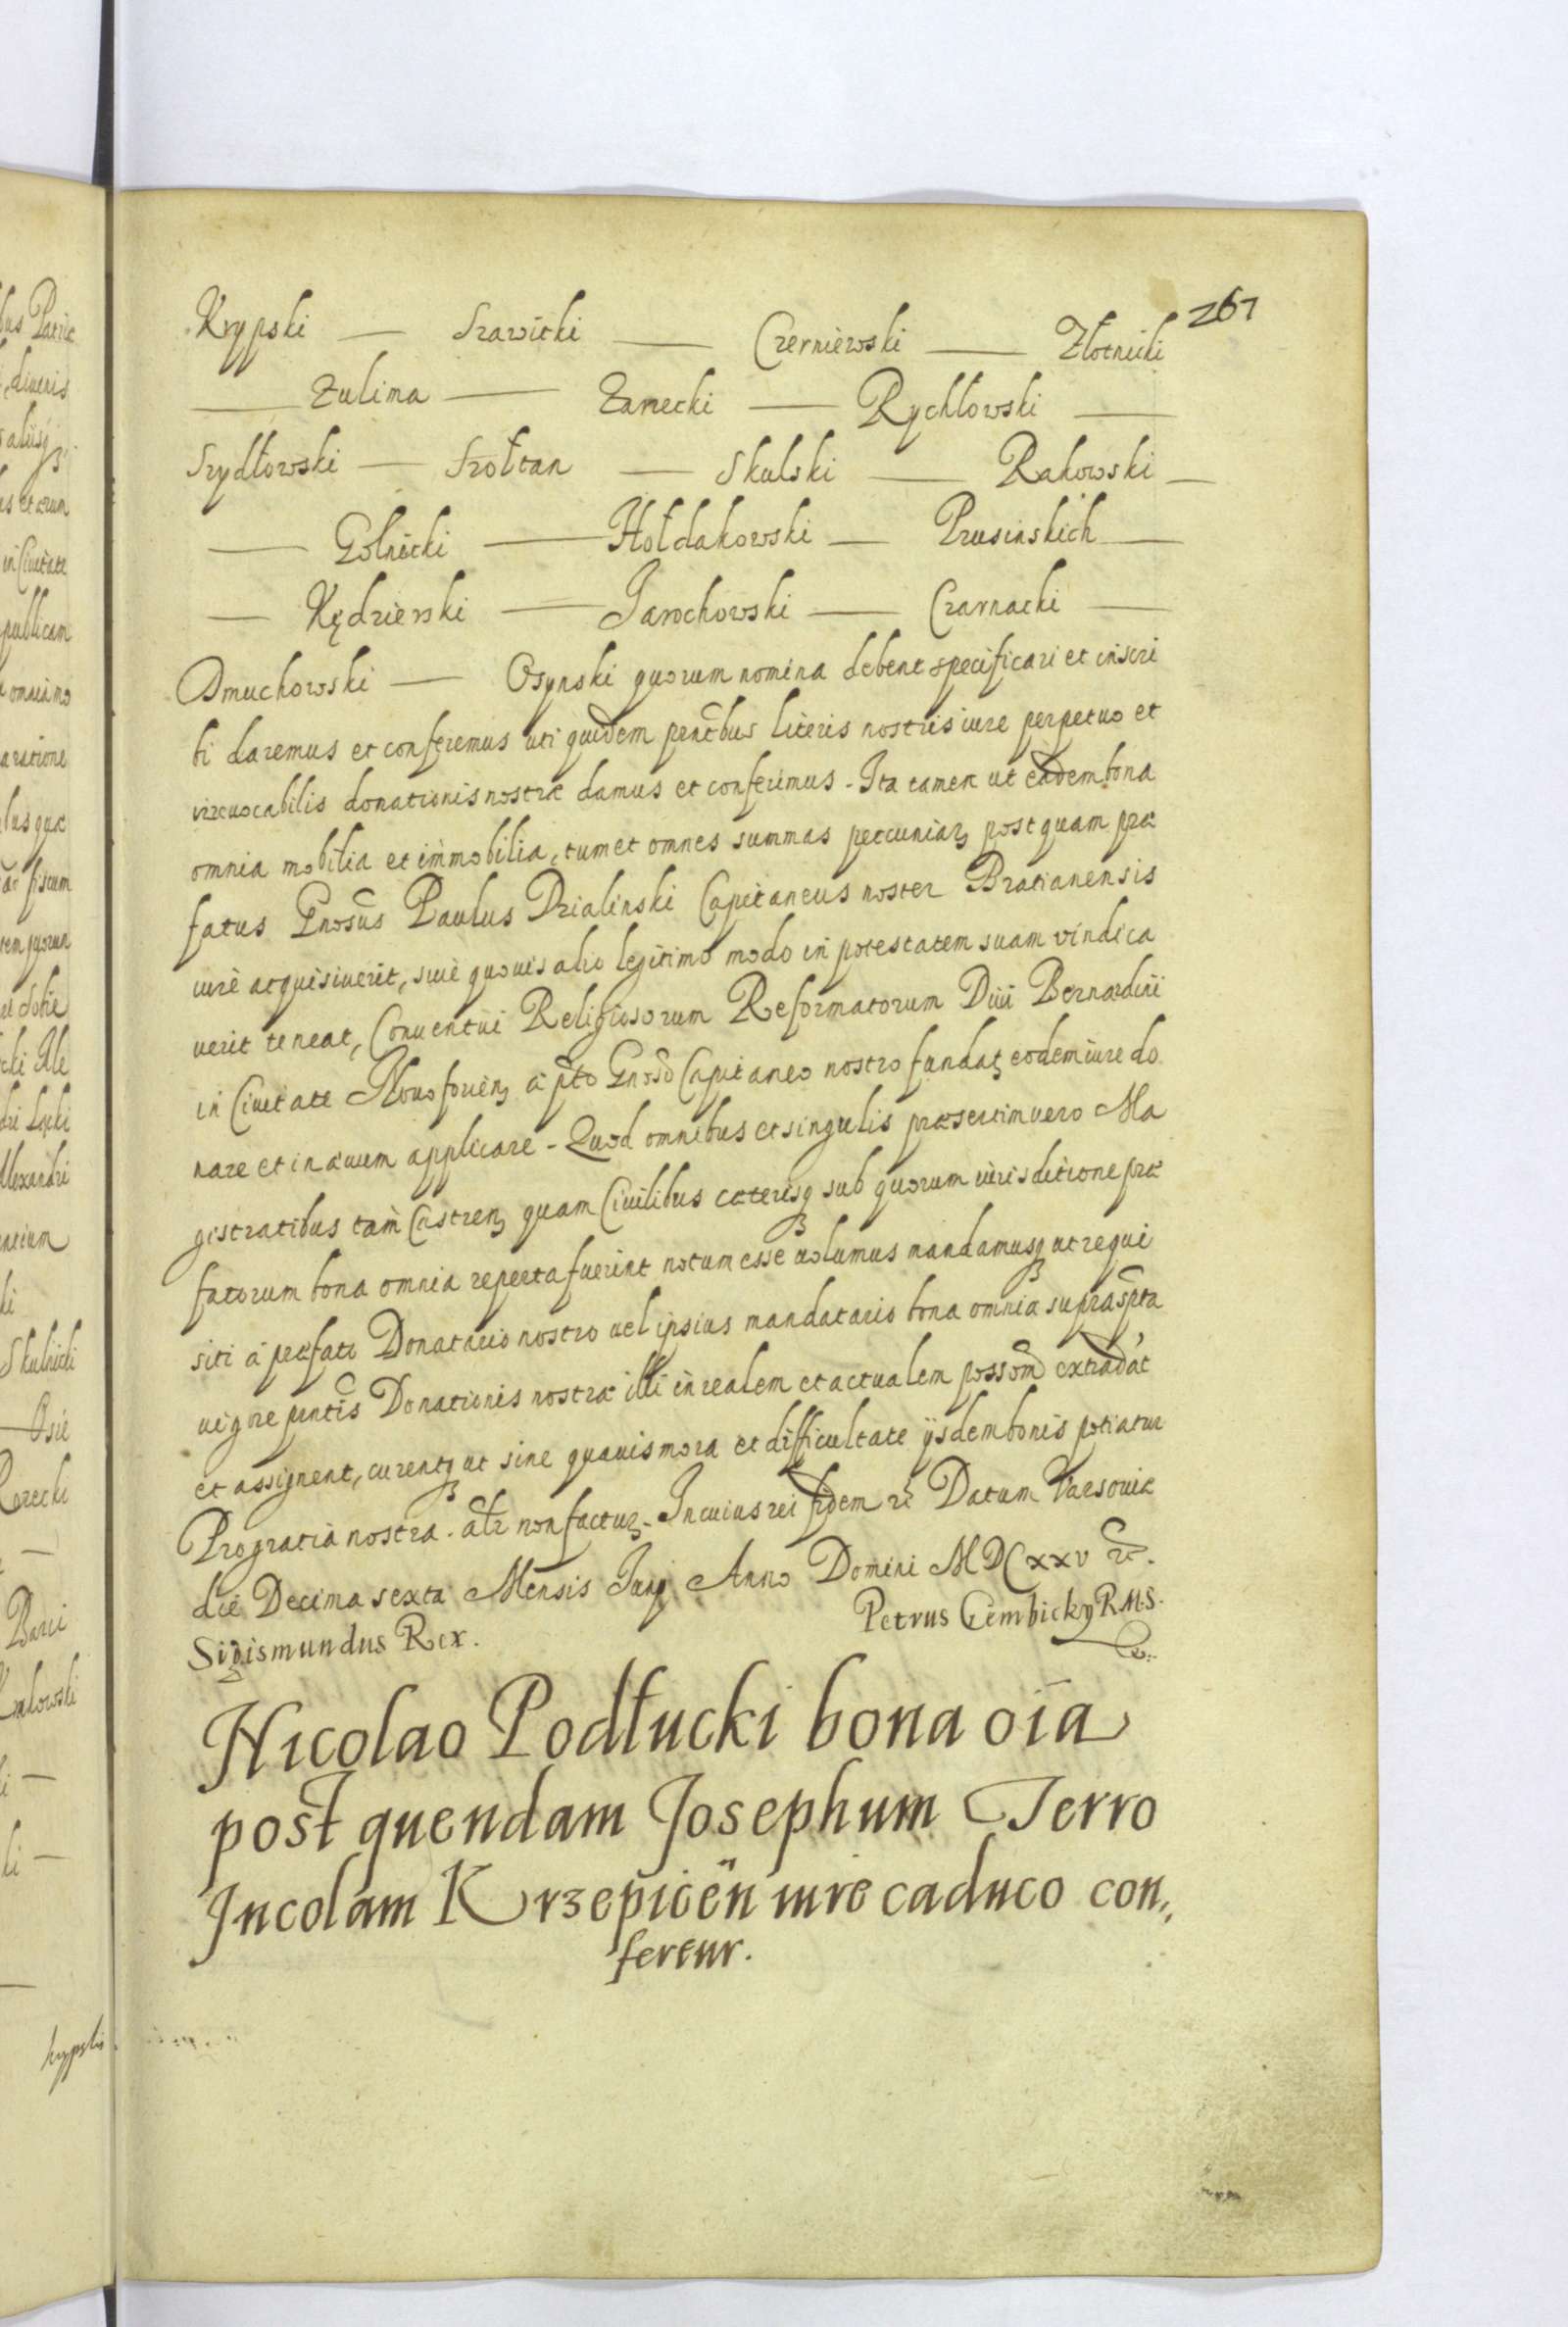 267
Krypski — Szawicki — Czerniewski — Złotnicki
— Zulima — Zarzecki — Rychłowski —
Szydłowski — Szołtan — Skulski — Rakowski —
— Golnicki — Hołdakowski — Prusinskich —
— Kędzierski — Jarochowski — Czarnacki —
Dmuchowski — Osynski quorum nomina debent specificari et inscri
bi daremus et conferemus uti quidem pentibus literis nostris iure perpetuo et
irreuocabilis donationis nostræ damus et conferimus - Ita tamen ut eadem bona
omnia mobilia et immobilia, tum et omnes summas pecuniarz postquam præ
fatus Gnosus Paulus Dzialinski Capitaneus noster Bratianensis
iure acquisiuerit, siue quouis alio legitimo modo in potestatem suam vindica
uerit teneat, Conuentui Religiosorum Reformatorum Diui Bernardini
in Ciuitate Nouoforienz á pto Gnoso Capitaneo nostro fundatz eodem iure do
nare et in æuum applicare - Quod omnibus et singulis præsertim vero Ma
gistratibus tam Castrenz quam Ciuilibus cæterisq sub quorum iurisditione præ
fatorum bona omnia reperta fuerint notum esse uolumus mandamusq ut requi
siti á præfato Donatario nostro uel ipsius mandatario bona omnia suprasptа
uigore pntis Donationis nostræ illi in realem et actualem possom extradāt
et assignent, curentq ut sine quauis mora et difficultate ijsdem bonis potiatur
Pro gratia nostra. alr non facturz - In cuius rei fidem rc Datum Varsouiæ
die Decima sexta Mensis Junij Anno Domini MDCxxv rc.
Sigismundus Rex. Petrus Gembicky R.M.S.
Nicolao Podłucki bona oīa
post quendam Josephum Terro
Incolam Krzepicēn iure caduco con,,
fertur.